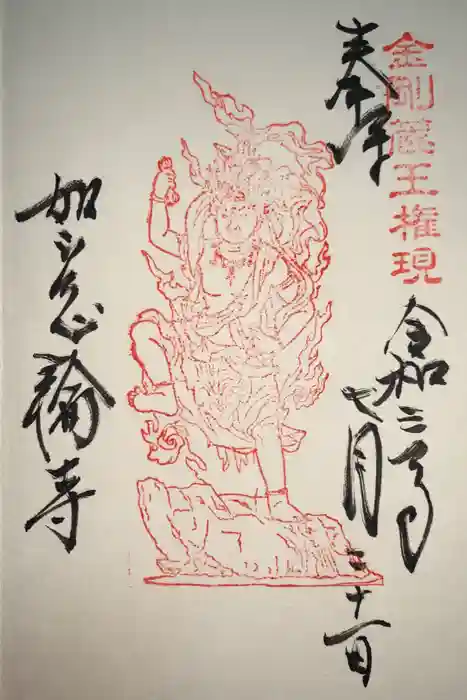 金剛蔵王権現
奉拝
令和二年
七月三十一日
如意輪寺